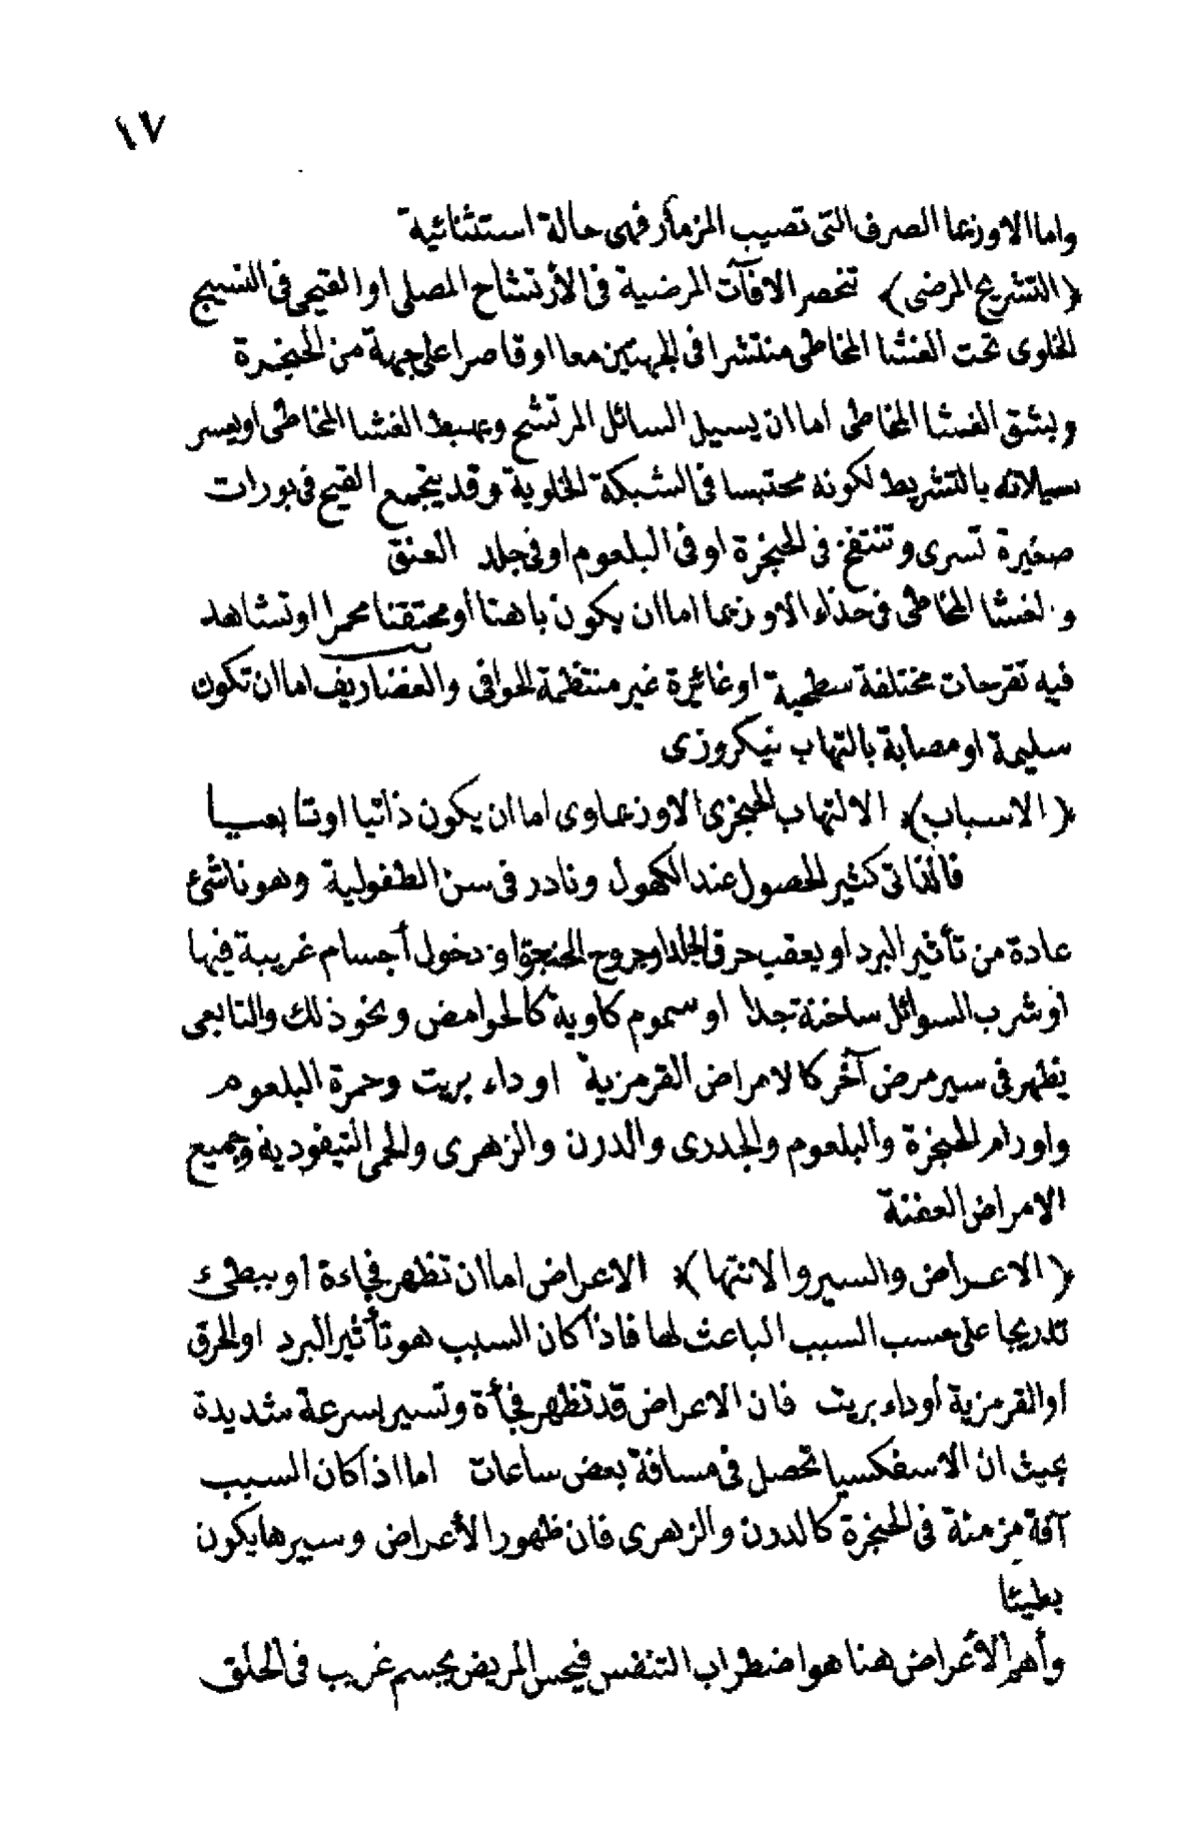 ١٧
واما الاوزيما الصرف التى تصيب المزمار فهى حالة استثنائية
﴿التشريح المرضى﴾ تنحصر الافآت المرضية فى الأرتشاح المصلى او القيحى فى النسيج
الخلوى تحت الغشا المخاطى منتشرا فى الجهتين معا او قاصرا على جهة من الحنجرة
وبشق الغشا المخاطى اما ان يسيل السائل المرتشح ويهبط الغشا المخاطى او يعسر
سيلانه بالتشريط لكونه محتبسا فى الشبكة الخلوية وقد يتجمع القيح فى بورات
صغيرة تسرى وتنتفخ فى الحنجرة او فى البلعوم او فى جلد العنق
والغشا المخاطى فى حذاء الاوزيما اما ان يكون باهتا أو محتقنا محمرا او تشاهد
فيه تقرحات مختلفة سطحية او غائرة غير منتظمة الحوافى والغضاريف اما ان تكون
سليمة او مصابة بالتهاب نيكروزى
﴿الاسباب﴾ الالتهاب الحنجرى الاوزيماوى اما ان يكون ذاتيا او تابعيا
فالذاتى كثير الحصول عند الكهول ونادر فى سن الطفولية وهو ناشئ
عادة من تأثير البرد او يعقب حرق الجلد او جروح الحنجرة او دخول أجسام غريبة فيها
او شرب السوائل ساخنة جدا او سموم كاوية كالحوامض ونحو ذلك والتابعى
يظهر فى سير مرض آخر كالامراض القرمزية او داء بريت وحمرة البلعوم
واورام الحنجرة والبلعوم والجدرى والدرن والزهرى والحمى التيفودية وجميع
الامراض العفنة
﴿الاعراض والسير والانتها﴾ الاعراض اما ان تظهر فجاءة او ببطىء
تدريجا على حسب السبب الباعث لها فاذا كان السبب هو تأثير البرد او الحرق
او القرمزية أو داء بريت فان الاعراض قد تظهر فجأة وتسير بسرعة شديدة
بحيث ان الاسفكسيا تحصل فى مسافة بعض ساعات اما اذا كان السبب
آفة مزمنة فى الحنجرة كالدرن والزهرى فان ظهور الأعراض وسيرها يكون
بطيئا
وأهم الأعراض هنا هو اضطراب التنفس فيحس المريض بجسم غريب فى الحلق